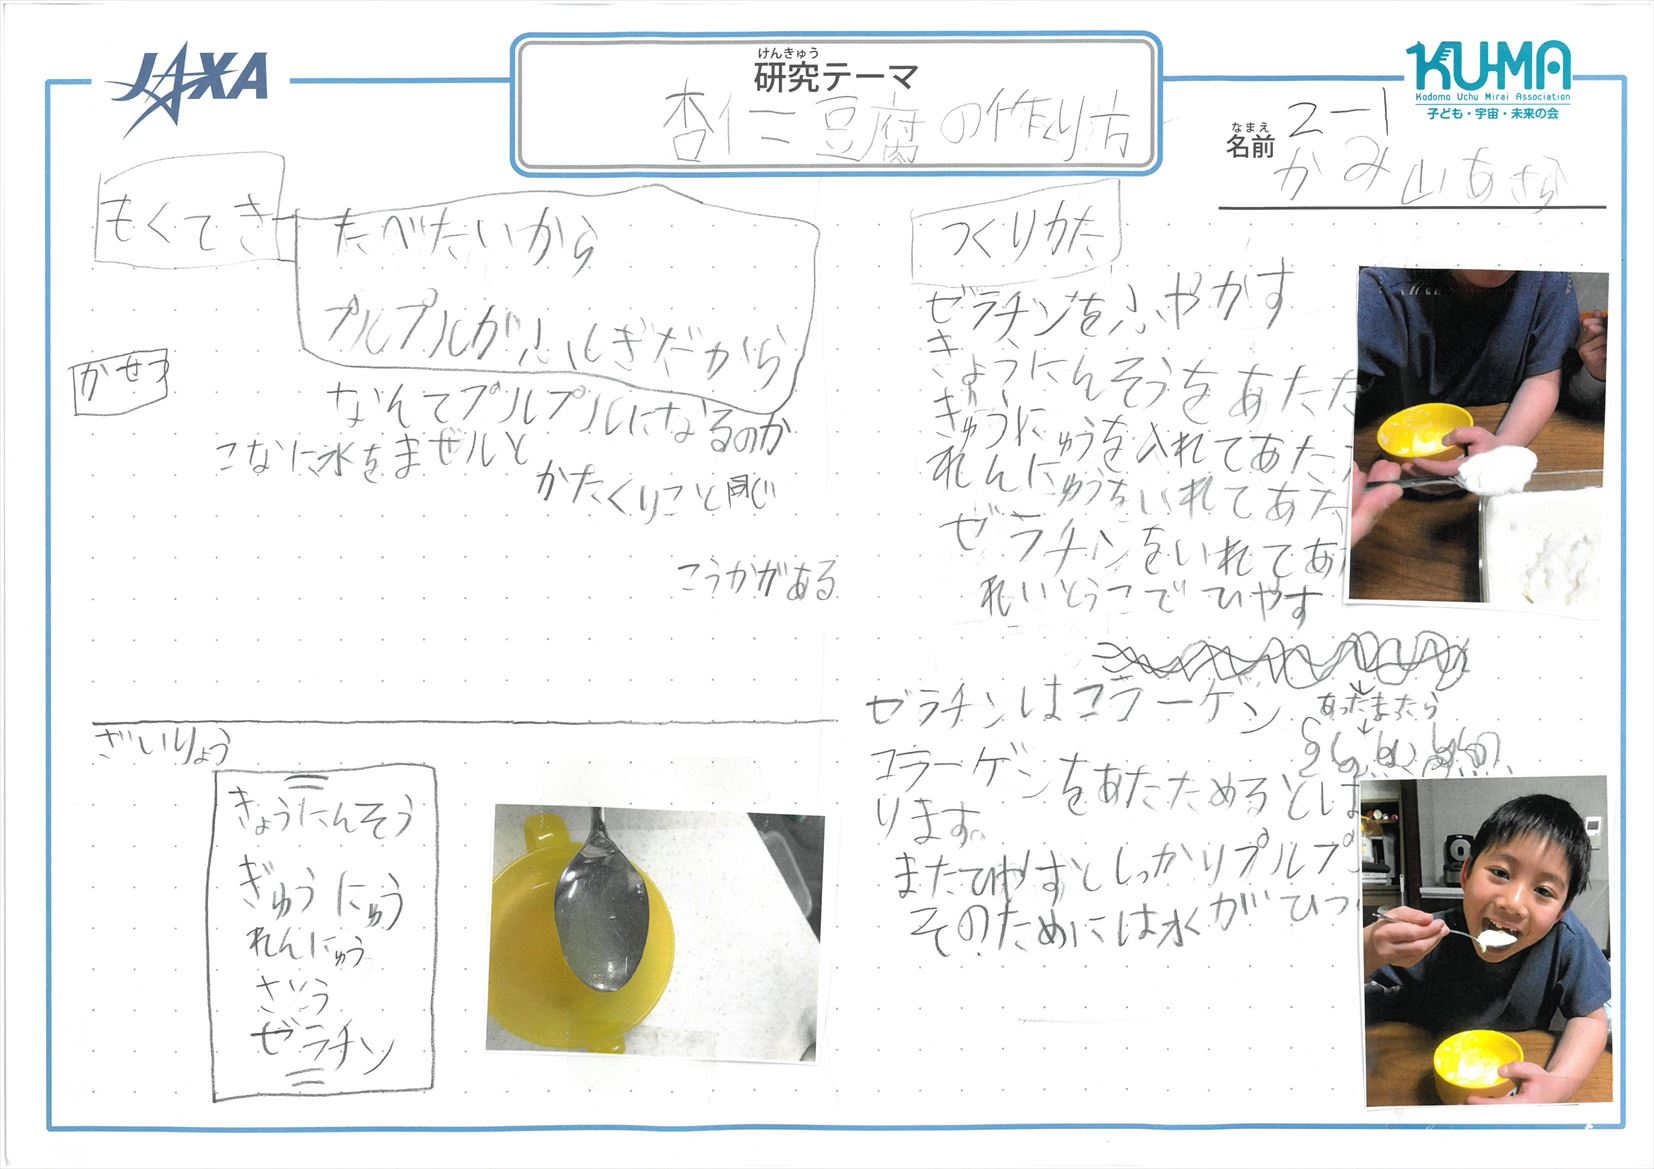 JAXA
けんきゅう
研究テーマ
杏仁豆腐の作り方
KU-MA
Kodomo Uchu Mirai Association
子ども・宇宙・未来の会
なまえ
名前
2-1
かみ山あさら
もくてき
たべたいから
プルプルがふしぎだから
かせつ
なんてプルプルになるのか
こなに水をまぜルと
かたくりこと同じ
こうかがある
ざいりょう
きょうにんそう
ぎゅうにゅう
れんにゅう
さとう
ゼラチン
つくりかた
ゼラチンをふやかす
きょうにんそうをあたた
ぎゅうにゅうを入れてあた
れんにゅうをいれてあた
ゼラチンをいれてあ
れいとうこでひやす
ゼラチンはコラーゲン
あったまったら
コラーゲンをあたためるとしば
ります。
またひやすとしっかりプルプ
そのためには水がひつ